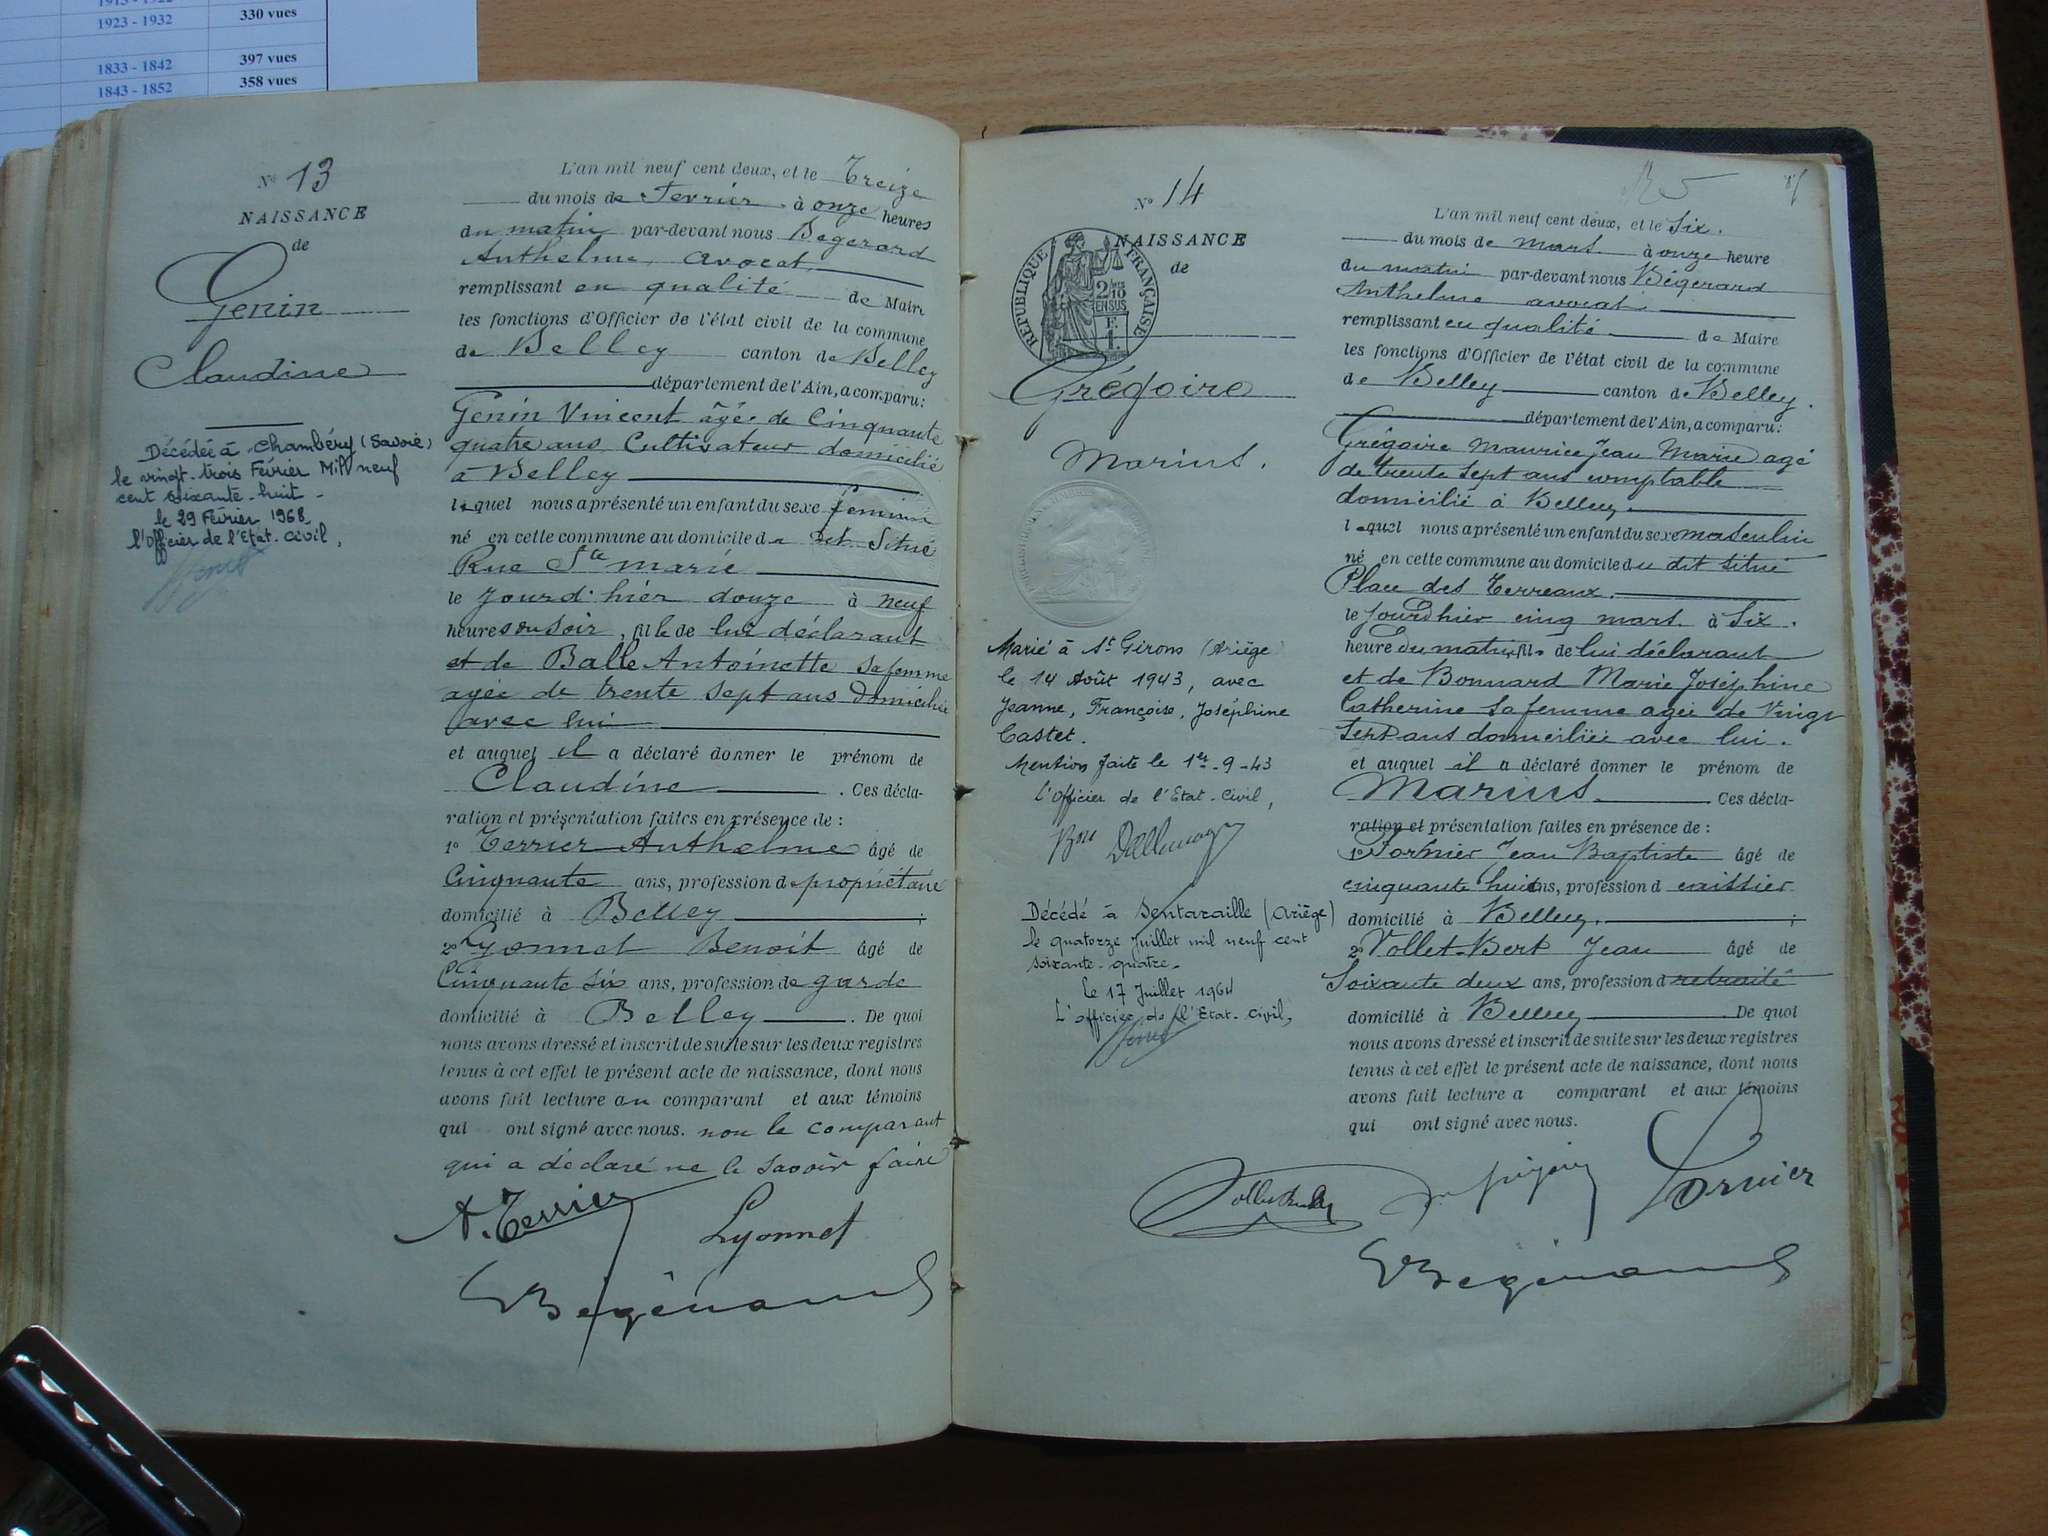 1923 - 1932 330 vues
1833 - 1842 397 vues
1843 - 1852 358 vues
N° 13
NAISSANCE
de
Genin
Claudine
Décédée à Chambéry (Savoie)
le vingt-trois Février Mil neuf
cent soixante-huit -
le 29 Février 1968
l'Officier de l'Etat-civil,
L'an mil neuf cent deux, et le Treize
du mois de Fevrier à onze heures
du matin par-devant nous Bégerard
Anthelme, avocat
remplissant en qualité de Maire
les fonctions d'Officier de l'état civil de la commune
de Belley canton de Belley
département de l'Ain, a comparu:
Genin Vincent âgé de Cinquante
quatre ans Cultivateur domicilié
a Belley
lequel nous a présenté un enfant du sexe feminin
né en cette commune au domicile du dit situé
Rue Ste marie
le jourd'hier douze à neuf
heures du soir, fille de lui déclarant
et de Balle Antoinette sa femme
agée de trente sept ans domiciliée
avec lui
et auquel il a déclaré donner le prénom de
Claudine . Ces décla-
ration et présentation faites en présence de :
1° Terrier Anthelme âgé de
Cinquante ans, profession de propriétaire
domicilié à Belley ;
2° Lyonnet Benoit âgé de
Cinquante six ans, profession de garde
domicilié à Belley . De quoi
nous avons dressé et inscrit de suite sur les deux registres
tenus à cet effet le présent acte de naissance, dont nous
avons fait lecture au comparant et aux témoins
qui ont signé avec nous. non le comparant
qui a déclaré ne le savoir faire
A. Terrier
Lyonnet
Bégerard
N° 14
NAISSANCE
de
RÉPUBLIQUE FRANÇAISE
2/10 EN SUS
F.
1.
Grégoire
Marius.
Marié à St Girons (Ariège
le 14 Août 1943, avec
Jeanne, Françoise, Joséphine
Castet.
Mention faite le 1er-9-43
l'Officier de l'Etat-Civil,
Bon Dallemagne
Décédé à Sentaraille (Ariège)
le quatorze Juillet mil neuf cent
soixante-quatre-
le 17 Juillet 1964
L'officier de l'Etat-Civil,
L'an mil neuf cent deux, et le Six.
du mois de mars à onze heure
du matin par-devant nous Bégerard
Anthelme avocat
remplissant en qualité de Maire
les fonctions d'Officier de l'état civil de la commune
de Belley canton de Belley.
département de l'Ain, a comparu:
Grégoire Maurice Jean Marie agé
de trente sept ans comptable
domicilié à Belley.
lequel nous a présenté un enfant du sexe masculin
né en cette commune au domicile du dit situé
Place des Terreaux.
le jourd'hier cinq mars à Six.
heure du matin, fils de lui déclarant
et de Bonnard Marie Joséphine
Catherine sa femme agée de Vingt
Sept ans domiciliée avec lui.
et auquel il a déclaré donner le prénom de
Marius. Ces décla-
ration et présentation faites en présence de :
1° Fornier Jean Baptiste âgé de
cinquante huit ans, profession d caissier
domicilié à Belley. ;
2° Vollet-Bert Jean âgé de
Soixante deux ans, profession d retraité
domicilié à Belley . De quoi
nous avons dressé et inscrit de suite sur les deux registres
tenus à cet effet le présent acte de naissance, dont nous
avons fait lecture a comparant et aux témoins
qui ont signé avec nous.
Fornier
Bégerard